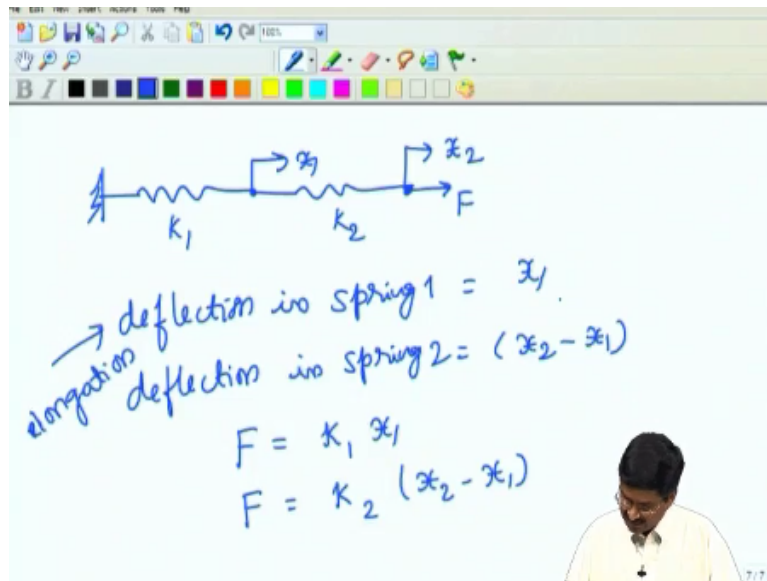 File Edit View Insert Actions Tools Help
100%
B I
x₁
x₂
F
K₁
K₂
deflection in spring 1 = x₁
elongation
deflection in spring 2 = (x₂ - x₁)
F = K₁ x₁
F = K₂ (x₂ - x₁)
7/7